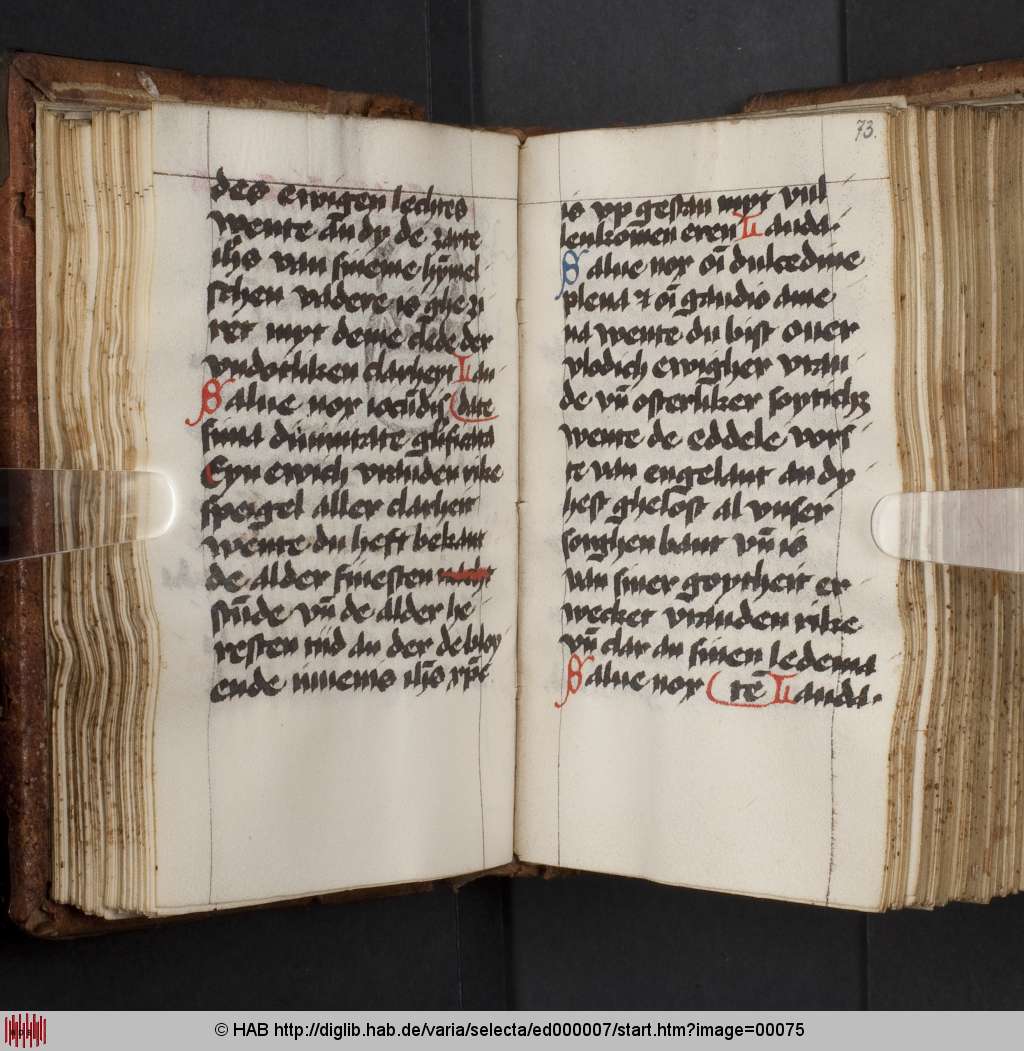 des ewigen lechtes
wente an̄ dy de zarte
ih̄s van sineme hȳmel
schen vadere is ghezi
ret myt deme clede der
vndotliken clarheyt Lau
Salue nox iocūdis (date
sima diuinitate gl̄ificata
Eyn ewich vrauden rike
speigel aller clarheit
wente du heft bekant
de alder sinesten
stūde vn̄ de alder he
resten tiid an der de bloy
ende iuuenis ih̄s xp̄c
73.
is vp gestan myt vul
lenkomēn eren Lauda.
Salue nox oī dulcedine
plena ⁊ oī gaudio ame
na wente du bist ouer
vlodich ewigher vrau
de vn̄ osterliker soyticht
wente de eddele vors
te van engelant an dy
heft ghelost al vnser
sorghen bant vn̄ is
van siner goytheit er
wecket vrauden rike
vn̄ clar an sinen ledema
Salue nox (tē Lauda.
© HAB http://diglib.hab.de/varia/selecta/ed000007/start.htm?image=00075